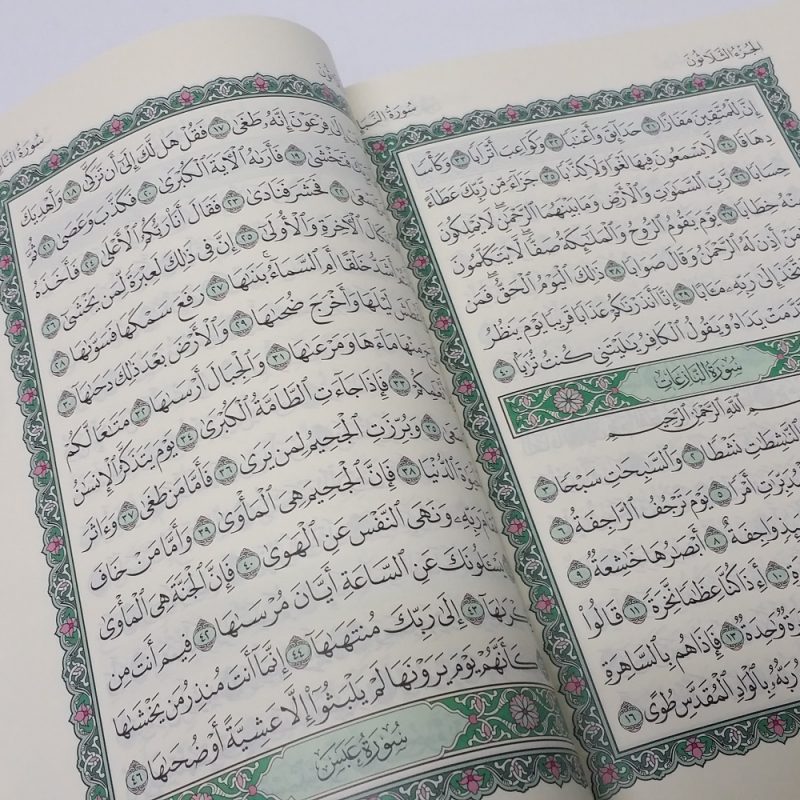 الجزء الثلاثون
إِنَّ لِلْمُتَّقِينَ مَفَازًا ٣١ حَدَآئِقَ وَأَعْنَٰبًا ٣٢ وَكَوَاعِبَ أَتْرَابًا ٣٣ وَكَأْسًا
دِهَاقًا ٣٤ لَّا يَسْمَعُونَ فِيهَا لَغْوًا وَلَا كِذَّٰبًا ٣٥ جَزَآءً مِّن رَّبِّكَ عَطَآءً
حِسَابًا ٣٦ رَّبِّ ٱلسَّمَٰوَٰتِ وَٱلْأَرْضِ وَمَا بَيْنَهُمَا ٱلرَّحْمَٰنِ ۖ لَا يَمْلِكُونَ
مِنْهُ خِطَابًا ٣٧ يَوْمَ يَقُومُ ٱلرُّوحُ وَٱلْمَلَٰٓئِكَةُ صَفًّا ۖ لَّا يَتَكَلَّمُونَ
مَنْ أَذِنَ لَهُ ٱلرَّحْمَٰنُ وَقَالَ صَوَابًا ٣٨ ذَٰلِكَ ٱلْيَوْمُ ٱلْحَقُّ ۖ فَمَن
إِلَىٰ رَبِّهِۦ مَـَٔابًا ٣٩ إِنَّآ أَنذَرْنَٰكُمْ عَذَابًا قَرِيبًا يَوْمَ يَنظُرُ
قَدَّمَتْ يَدَاهُ وَيَقُولُ ٱلْكَافِرُ يَٰلَيْتَنِى كُنتُ تُرَٰبًۢا ٤٠
سُورَةُ النَّازِعَاتِ
ٱللَّهِ ٱلرَّحْمَٰنِ ٱلرَّحِيمِ
نَشْطًا ٢ وَٱلسَّٰبِحَٰتِ سَبْحًا ٣
أَمْرًا ٥ يَوْمَ تَرْجُفُ ٱلرَّاجِفَةُ ٦
وَاجِفَةٌ ٨ أَبْصَٰرُهَا خَٰشِعَةٌ ٩
١٠ أَءِذَا كُنَّا عِظَٰمًا نَّخِرَةً ١١ قَالُوا۟
وَٰحِدَةٌ ١٣ فَإِذَا هُم بِٱلسَّاهِرَةِ
رَبُّهُۥ بِٱلْوَادِ ٱلْمُقَدَّسِ طُوًى ١٦
إِلَىٰ فِرْعَوْنَ إِنَّهُۥ طَغَىٰ ١٧ فَقُلْ هَل لَّكَ إِلَىٰٓ أَن تَزَكَّىٰ ١٨ وَأَهْدِيَكَ
فَتَخْشَىٰ ١٩ فَأَرَىٰهُ ٱلْءَايَةَ ٱلْكُبْرَىٰ ٢٠ فَكَذَّبَ وَعَصَىٰ ٢١ ثُمَّ
٢٢ فَحَشَرَ فَنَادَىٰ ٢٣ فَقَالَ أَنَا۠ رَبُّكُمُ ٱلْأَعْلَىٰ ٢٤ فَأَخَذَهُ
نَكَالَ ٱلْءَاخِرَةِ وَٱلْأُولَىٰٓ ٢٥ إِنَّ فِى ذَٰلِكَ لَعِبْرَةً لِّمَن يَخْشَىٰٓ ٢٦
أَشَدُّ خَلْقًا أَمِ ٱلسَّمَآءُ ۚ بَنَىٰهَا ٢٧ رَفَعَ سَمْكَهَا فَسَوَّىٰهَا ٢٨
لَيْلَهَا وَأَخْرَجَ ضُحَىٰهَا ٢٩ وَٱلْأَرْضَ بَعْدَ ذَٰلِكَ دَحَىٰهَآ ٣٠
مِنْهَا مَآءَهَا وَمَرْعَىٰهَا ٣١ وَٱلْجِبَالَ أَرْسَىٰهَا ٣٢ مَتَٰعًا لَّكُمْ
٣٣ فَإِذَا جَآءَتِ ٱلطَّآمَّةُ ٱلْكُبْرَىٰ ٣٤ يَوْمَ يَتَذَكَّرُ ٱلْإِنسَٰنُ
٣٥ وَبُرِّزَتِ ٱلْجَحِيمُ لِمَن يَرَىٰ ٣٦ فَأَمَّا مَن طَغَىٰ ٣٧ وَءَاثَرَ
ٱلدُّنْيَا ٣٨ فَإِنَّ ٱلْجَحِيمَ هِىَ ٱلْمَأْوَىٰ ٣٩ وَأَمَّا مَنْ خَافَ
رَبِّهِۦ وَنَهَى ٱلنَّفْسَ عَنِ ٱلْهَوَىٰ ٤٠ فَإِنَّ ٱلْجَنَّةَ هِىَ ٱلْمَأْوَىٰ
عَنِ ٱلسَّاعَةِ أَيَّانَ مُرْسَىٰهَا ٤٢ فِيمَ أَنتَ مِن
٤٣ إِلَىٰ رَبِّكَ مُنتَهَىٰهَآ ٤٤ إِنَّمَآ أَنتَ مُنذِرُ مَن يَخْشَىٰهَا
كَأَنَّهُمْ يَوْمَ يَرَوْنَهَا لَمْ يَلْبَثُوٓا۟ إِلَّا عَشِيَّةً أَوْ ضُحَىٰهَا ٤٦
سُورَةُ عَبَسَ